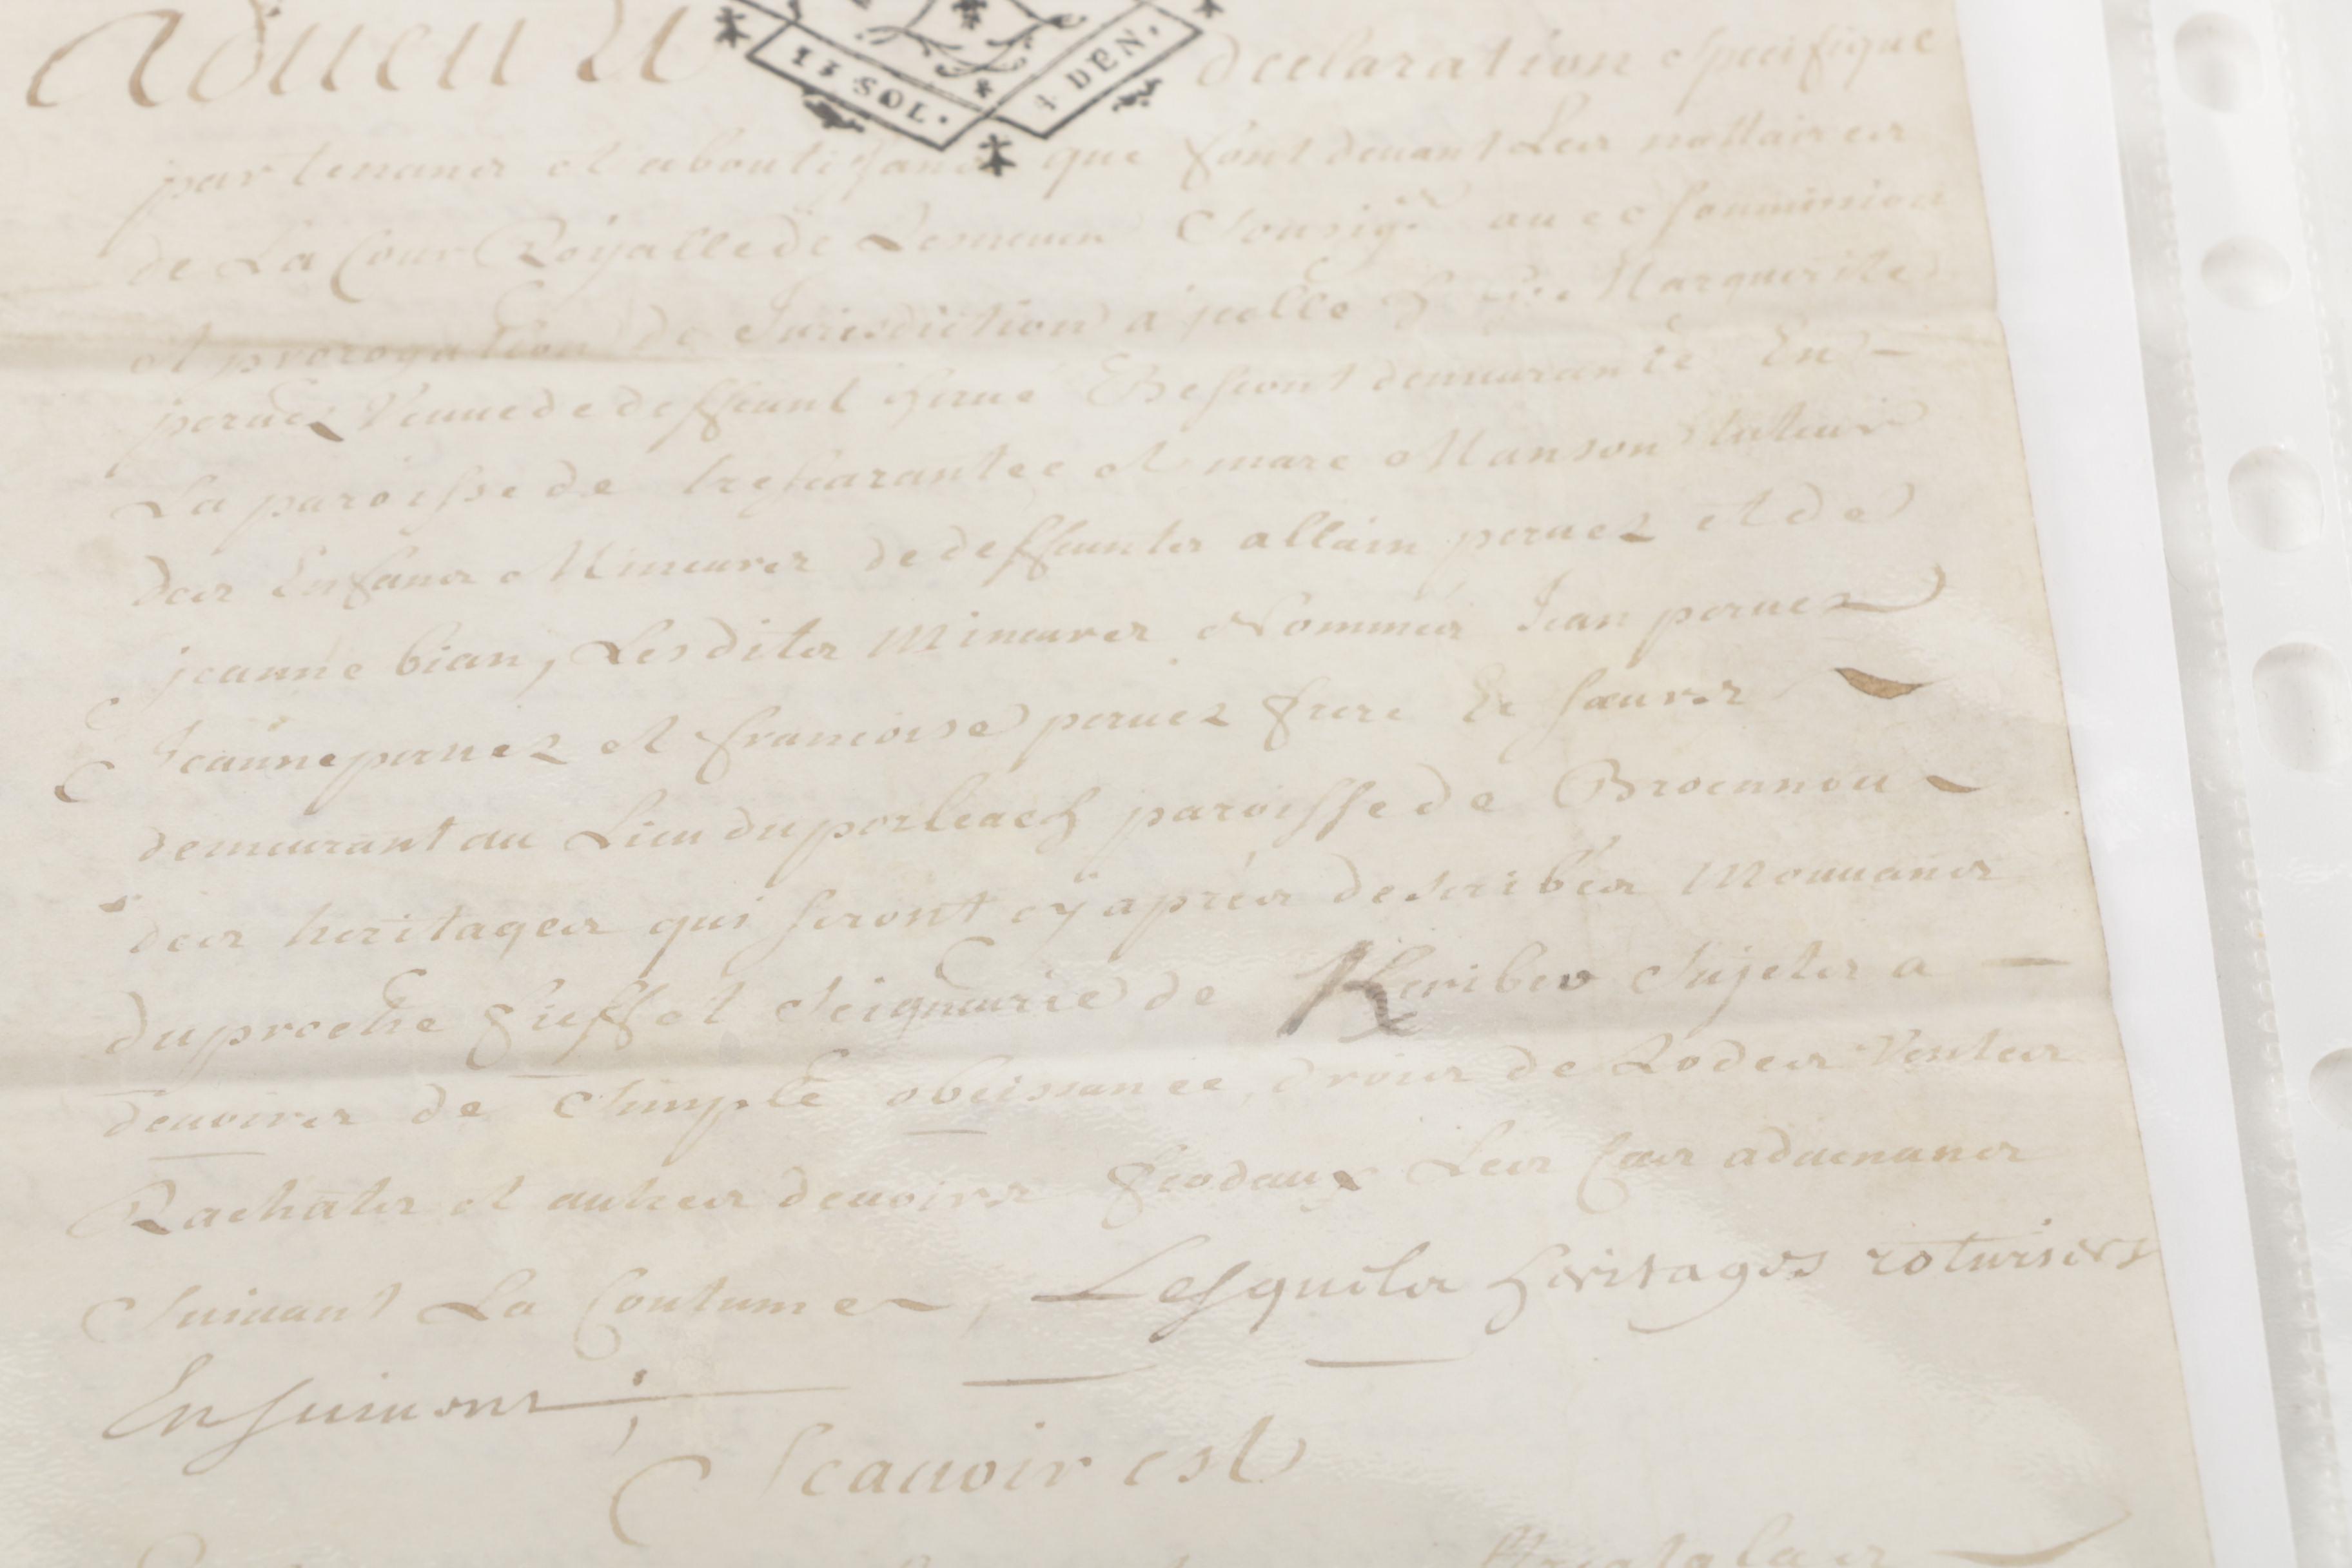 Adueu Et declaration specifique
11 SOL. 4 DEN.
par tenans et aboutissans que font deuant Les nottaires
de La Cour Royalle de Lesneuen Soussig. auec soummission
et prorogation de Jurisdiction a jcelle Marguerite
pernez Veuue de deffeunt herué demeurante En
La paroisse de treffcarantec et marc Manson tuteur
des Enfans Mineures de deffeunts allain pernez et de
jeanne bian, Lesdits Mineures Nommés Jean pernez
Jeanne pernez et francoise pernez frere Et sœurs
demeurant au Lieu du porleach paroisse de Broennou
des heritages qui seront cy apres describés Mouuans
du proche fieff et Seigneurie de Keribeo Sujets a
deuoirs de Simple obeissance, droits de Lodes Ventes
Rachats et autres deuoirs feodaux Les Cas aduenans
Suiuant La Coutume, Lesquels heritages roturiers
Ensuiuont;
Scauoir est